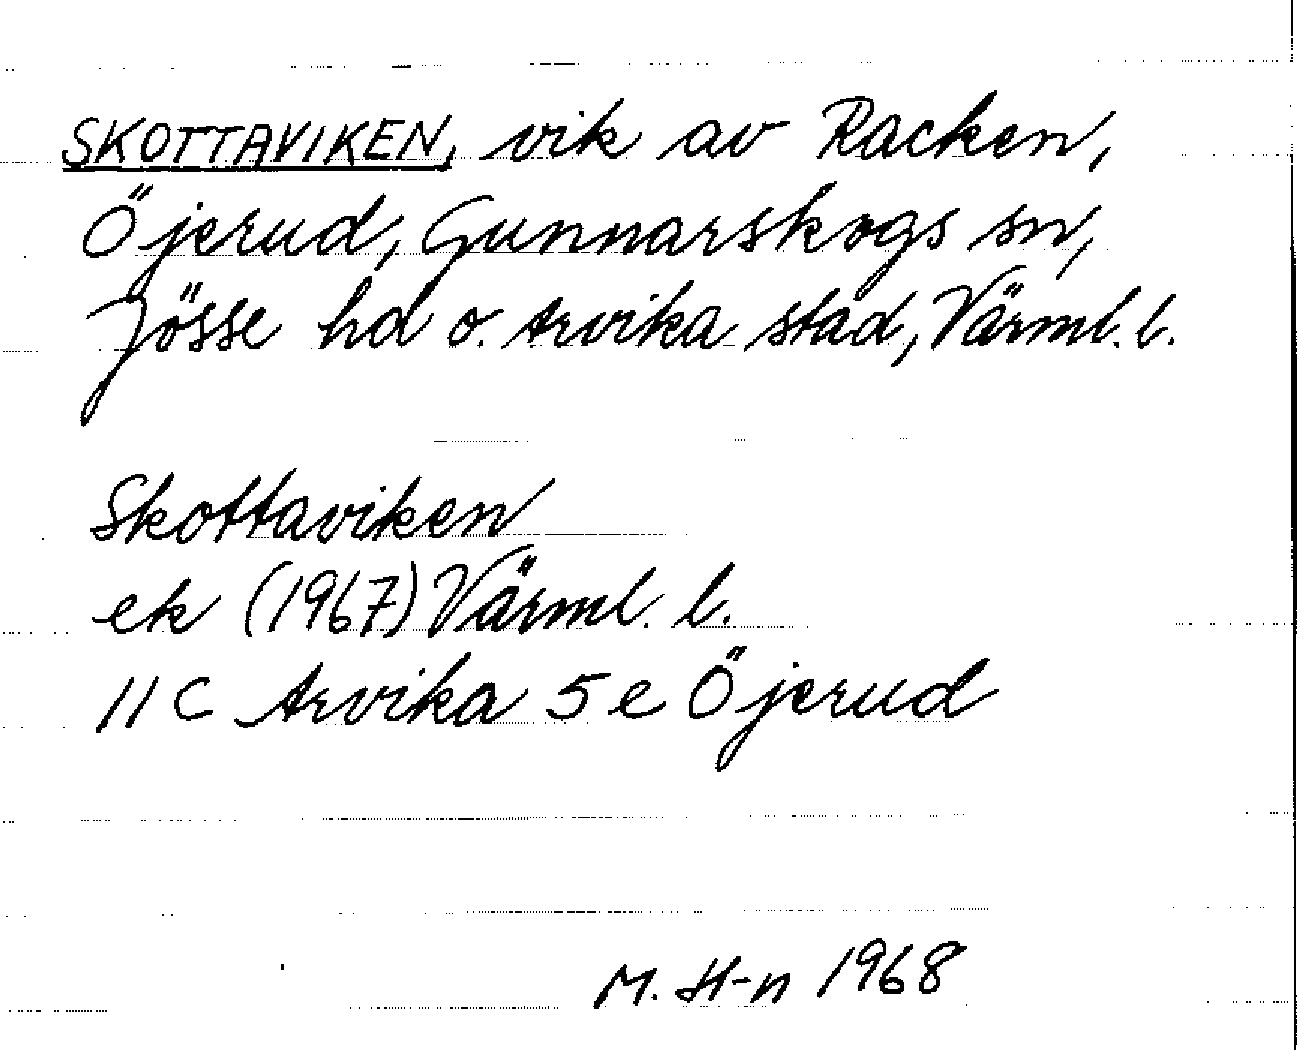 SKOTTAVIKEN, vik av Racken,
Öjerud, Gunnarskogs sn,
Jösse hd o. Arvika stad, Värml. l.
Skottaviken
ek (1967) Värml. l.
11 C Arvika 5 e Öjerud
M. H-n 1968